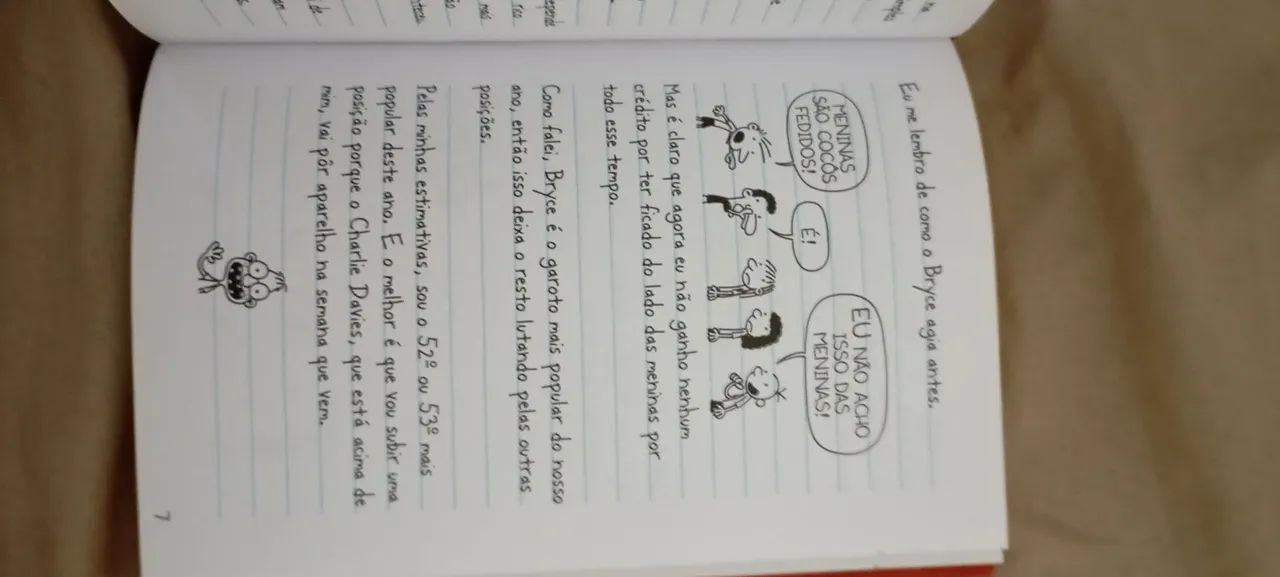 Eu me lembro de como o Bryce agia antes.
MENINAS
SÃO COCÔS
FEDIDOS!
É!
EU NÃO ACHO
ISSO DAS
MENINAS!
Mas é claro que agora eu não ganho nenhum
crédito por ter ficado do lado das meninas por
todo esse tempo.
Como falei, Bryce é o garoto mais popular do nosso
ano, então isso deixa o resto lutando pelas outras
posições.
Pelas minhas estimativas, sou o 52º ou 53º mais
popular deste ano. E o melhor é que vou subir uma
posição porque o Charlie Davies, que está acima de
mim, vai pôr aparelho na semana que vem.
7